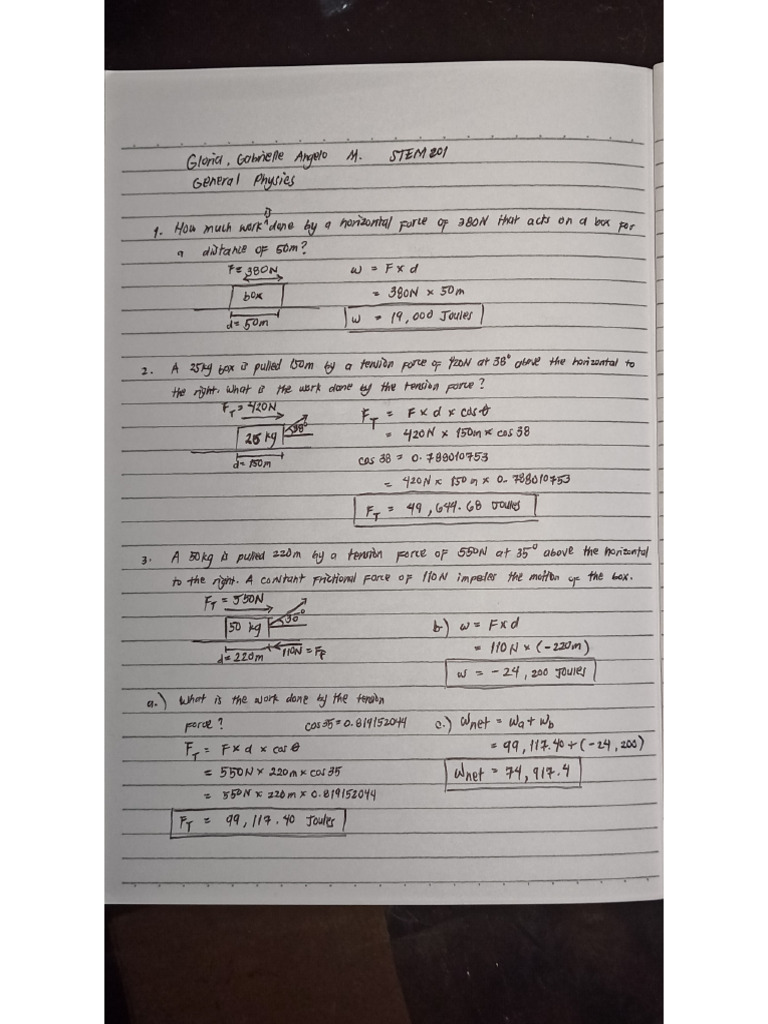 Gloria, Gabrielle Angelo M. STEM 201
General Physics
1. How much work is done by a horizontal force of 380N that acts on a box for
a distance of 50m?
F = 380N
box
d = 50m
w = F x d
= 380N x 50m
w = 19,000 Joules
2. A 25kg box is pulled 150m by a tension force of 420N at 38° above the horizontal to
the right. What is the work done by the tension force?
FT = 420N
25 kg
38°
d = 150m
FT = F x d x cos θ
= 420N x 150m x cos 38
cos 38 = 0.788010753
= 420N x 150m x 0.788010753
FT = 49,644.68 Joules
3. A 50kg is pulled 220m by a tension force of 550N at 35° above the horizontal
to the right. A constant frictional force of 110N impedes the motion of the box.
FT = 550N
50 kg
30°
d = 220m
110N = FF
b) w = F x d
= 110N x (-220m)
w = -24,200 Joules
a.) What is the work done by the tension
force? cos 35 = 0.819152044
FT = F x d x cos θ
= 550N x 220m x cos 35
= 550N x 220m x 0.819152044
FT = 99,117.40 Joules
c.) Wnet = Wa + Wb
= 99,117.40 + (-24,200)
Wnet = 74,917.4